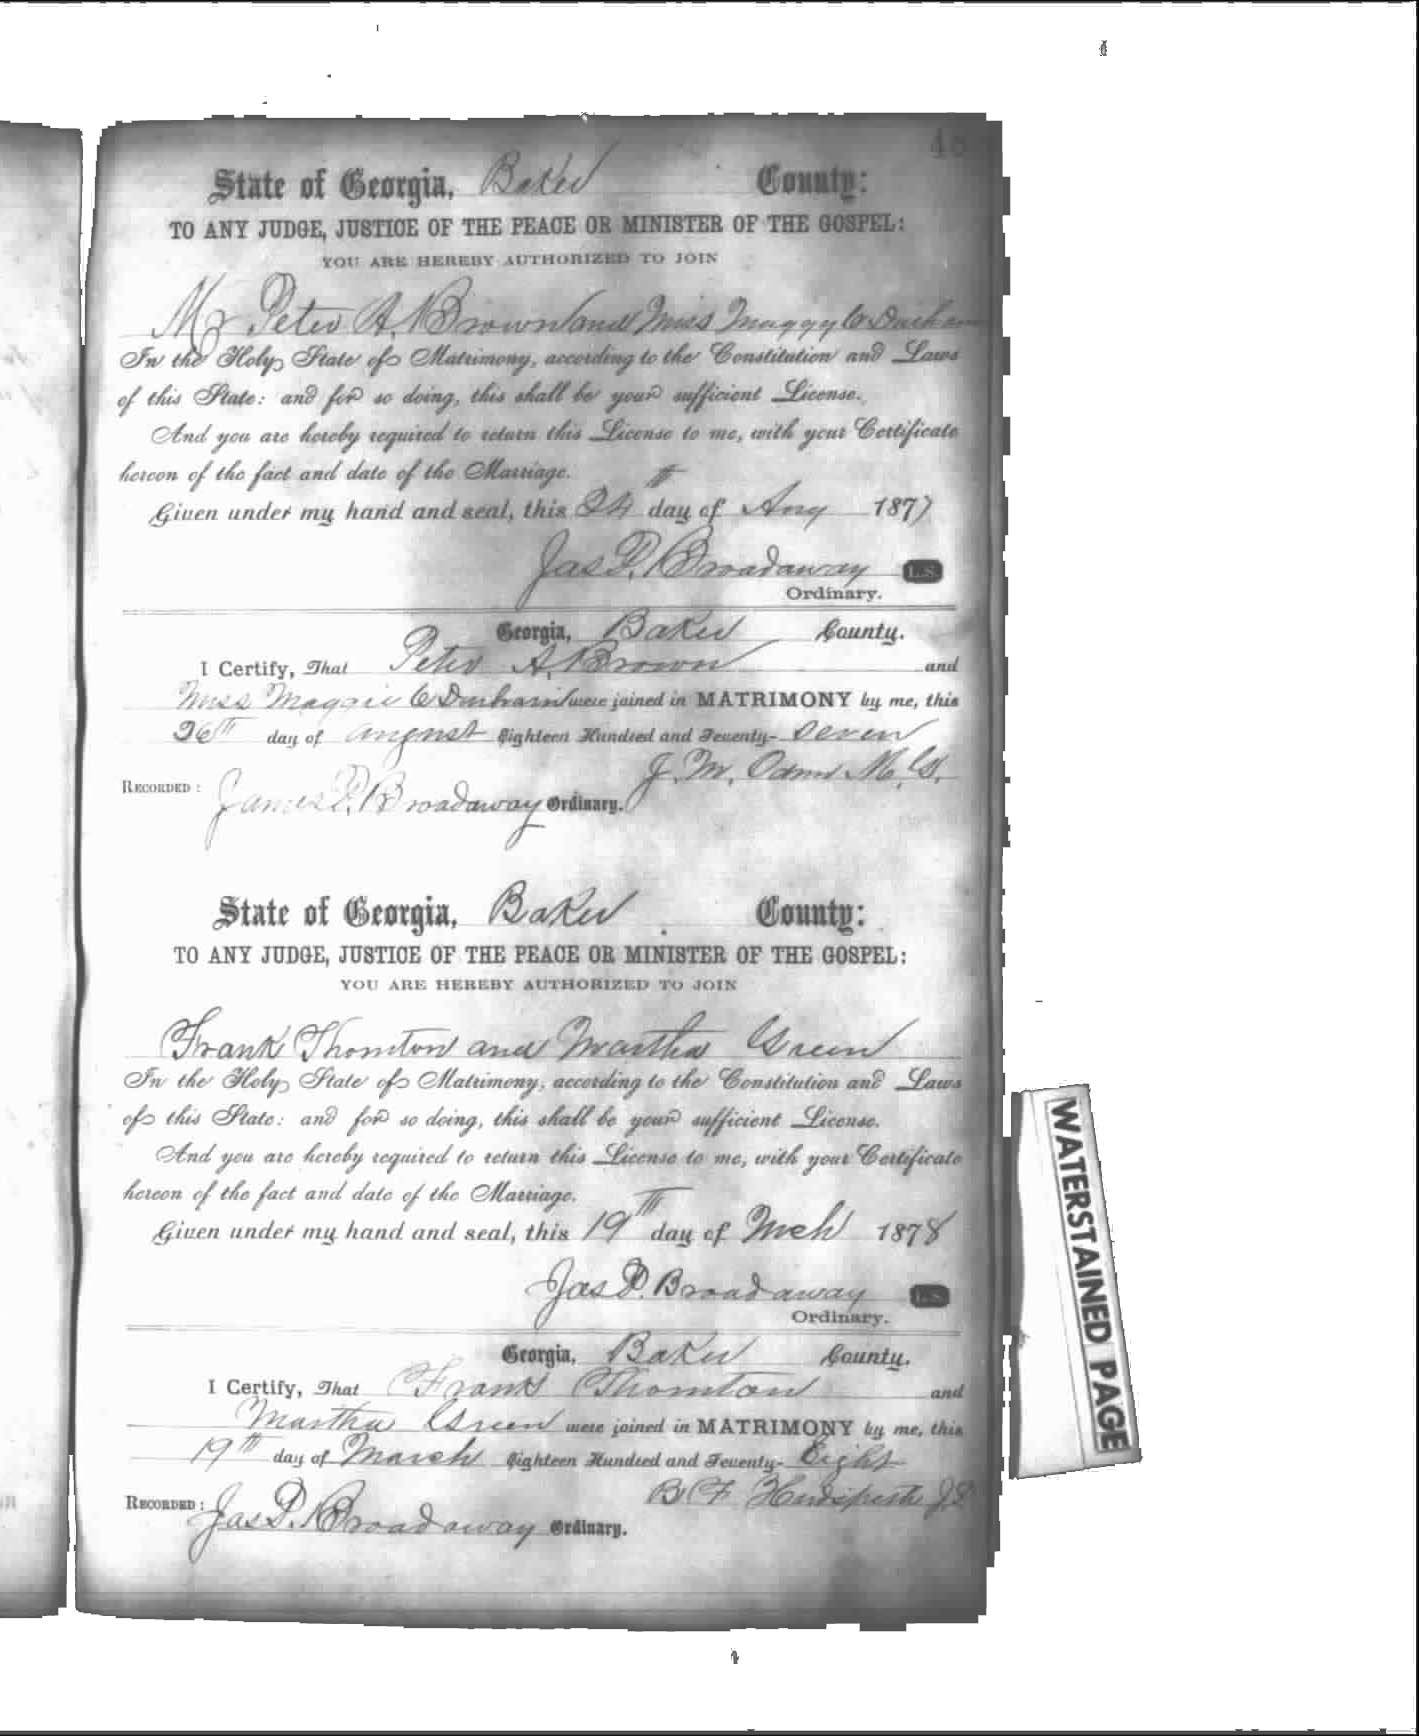 State of Georgia, Baker County:
TO ANY JUDGE, JUSTICE OF THE PEACE OR MINISTER OF THE GOSPEL:
YOU ARE HEREBY AUTHORIZED TO JOIN
Mr Peter A. Brown and Miss Maggy C Durham
In the Holy State of Matrimony, according to the Constitution and Laws
of this State: and for so doing, this shall be your sufficient License.
And you are hereby required to return this License to me, with your Certificate
hereon of the fact and date of the Marriage.
Given under my hand and seal, this 24th day of Aug 1877
Jas P. Broadaway L.S.
Ordinary.
Georgia, Baker County.
I Certify, That Peter A. Brown and
Miss Maggie C Durham were joined in MATRIMONY by me, this
26th day of august Eighteen Hundred and Seventy- Seven
J. M. M.G.
RECORDED: James P. Broadaway Ordinary.
State of Georgia, Baker County:
TO ANY JUDGE, JUSTICE OF THE PEACE OR MINISTER OF THE GOSPEL:
YOU ARE HEREBY AUTHORIZED TO JOIN
Frank Thornton and Martha Green
In the Holy State of Matrimony, according to the Constitution and Laws
of this State: and for so doing, this shall be your sufficient License.
And you are hereby required to return this License to me, with your Certificate
hereon of the fact and date of the Marriage.
Given under my hand and seal, this 19th day of Mch 1878
Jas P. Broadaway L.S.
Ordinary.
Georgia, Baker County.
I Certify, That Frank Thornton and
Martha Green were joined in MATRIMONY by me, this
19th day of March Eighteen Hundred and Seventy- Eight
B F J.P.
RECORDED: Jas P. Broadaway Ordinary.
WATERSTAINED PAGE